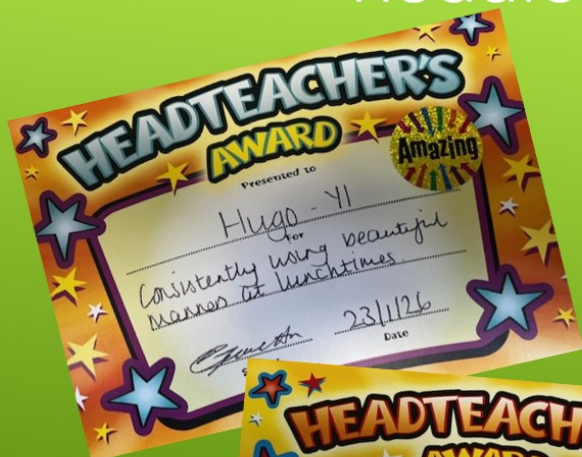 HEADTEACHER'S
AWARD
Amazing
Presented to
Hugo - Y1
for
Consistently using beautiful
manners at lunchtimes.
23/1/26
Date
HEADTEACH